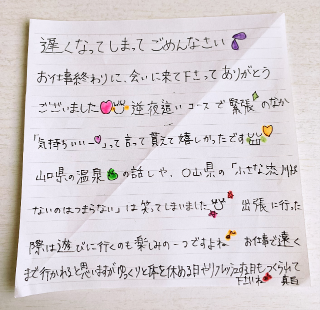 遅くなってしまってごめんなさい
お仕事終わりに、会いに来て下さってありがとう
ございました 逆夜這いコースで緊張のなか
「気持ちいいー」って言って貰えて嬉しかったです
山口県の温泉の話しや、〇山県の「小さな
ないのはつまらない」は笑ってしまいました 出張に行った
際は遊びに行くのも楽しみの一つですよね お仕事で遠く
まで行かれると思いますがゆっくりと体を休める日やリフレッシュする日もつくられて
下さいね 真白